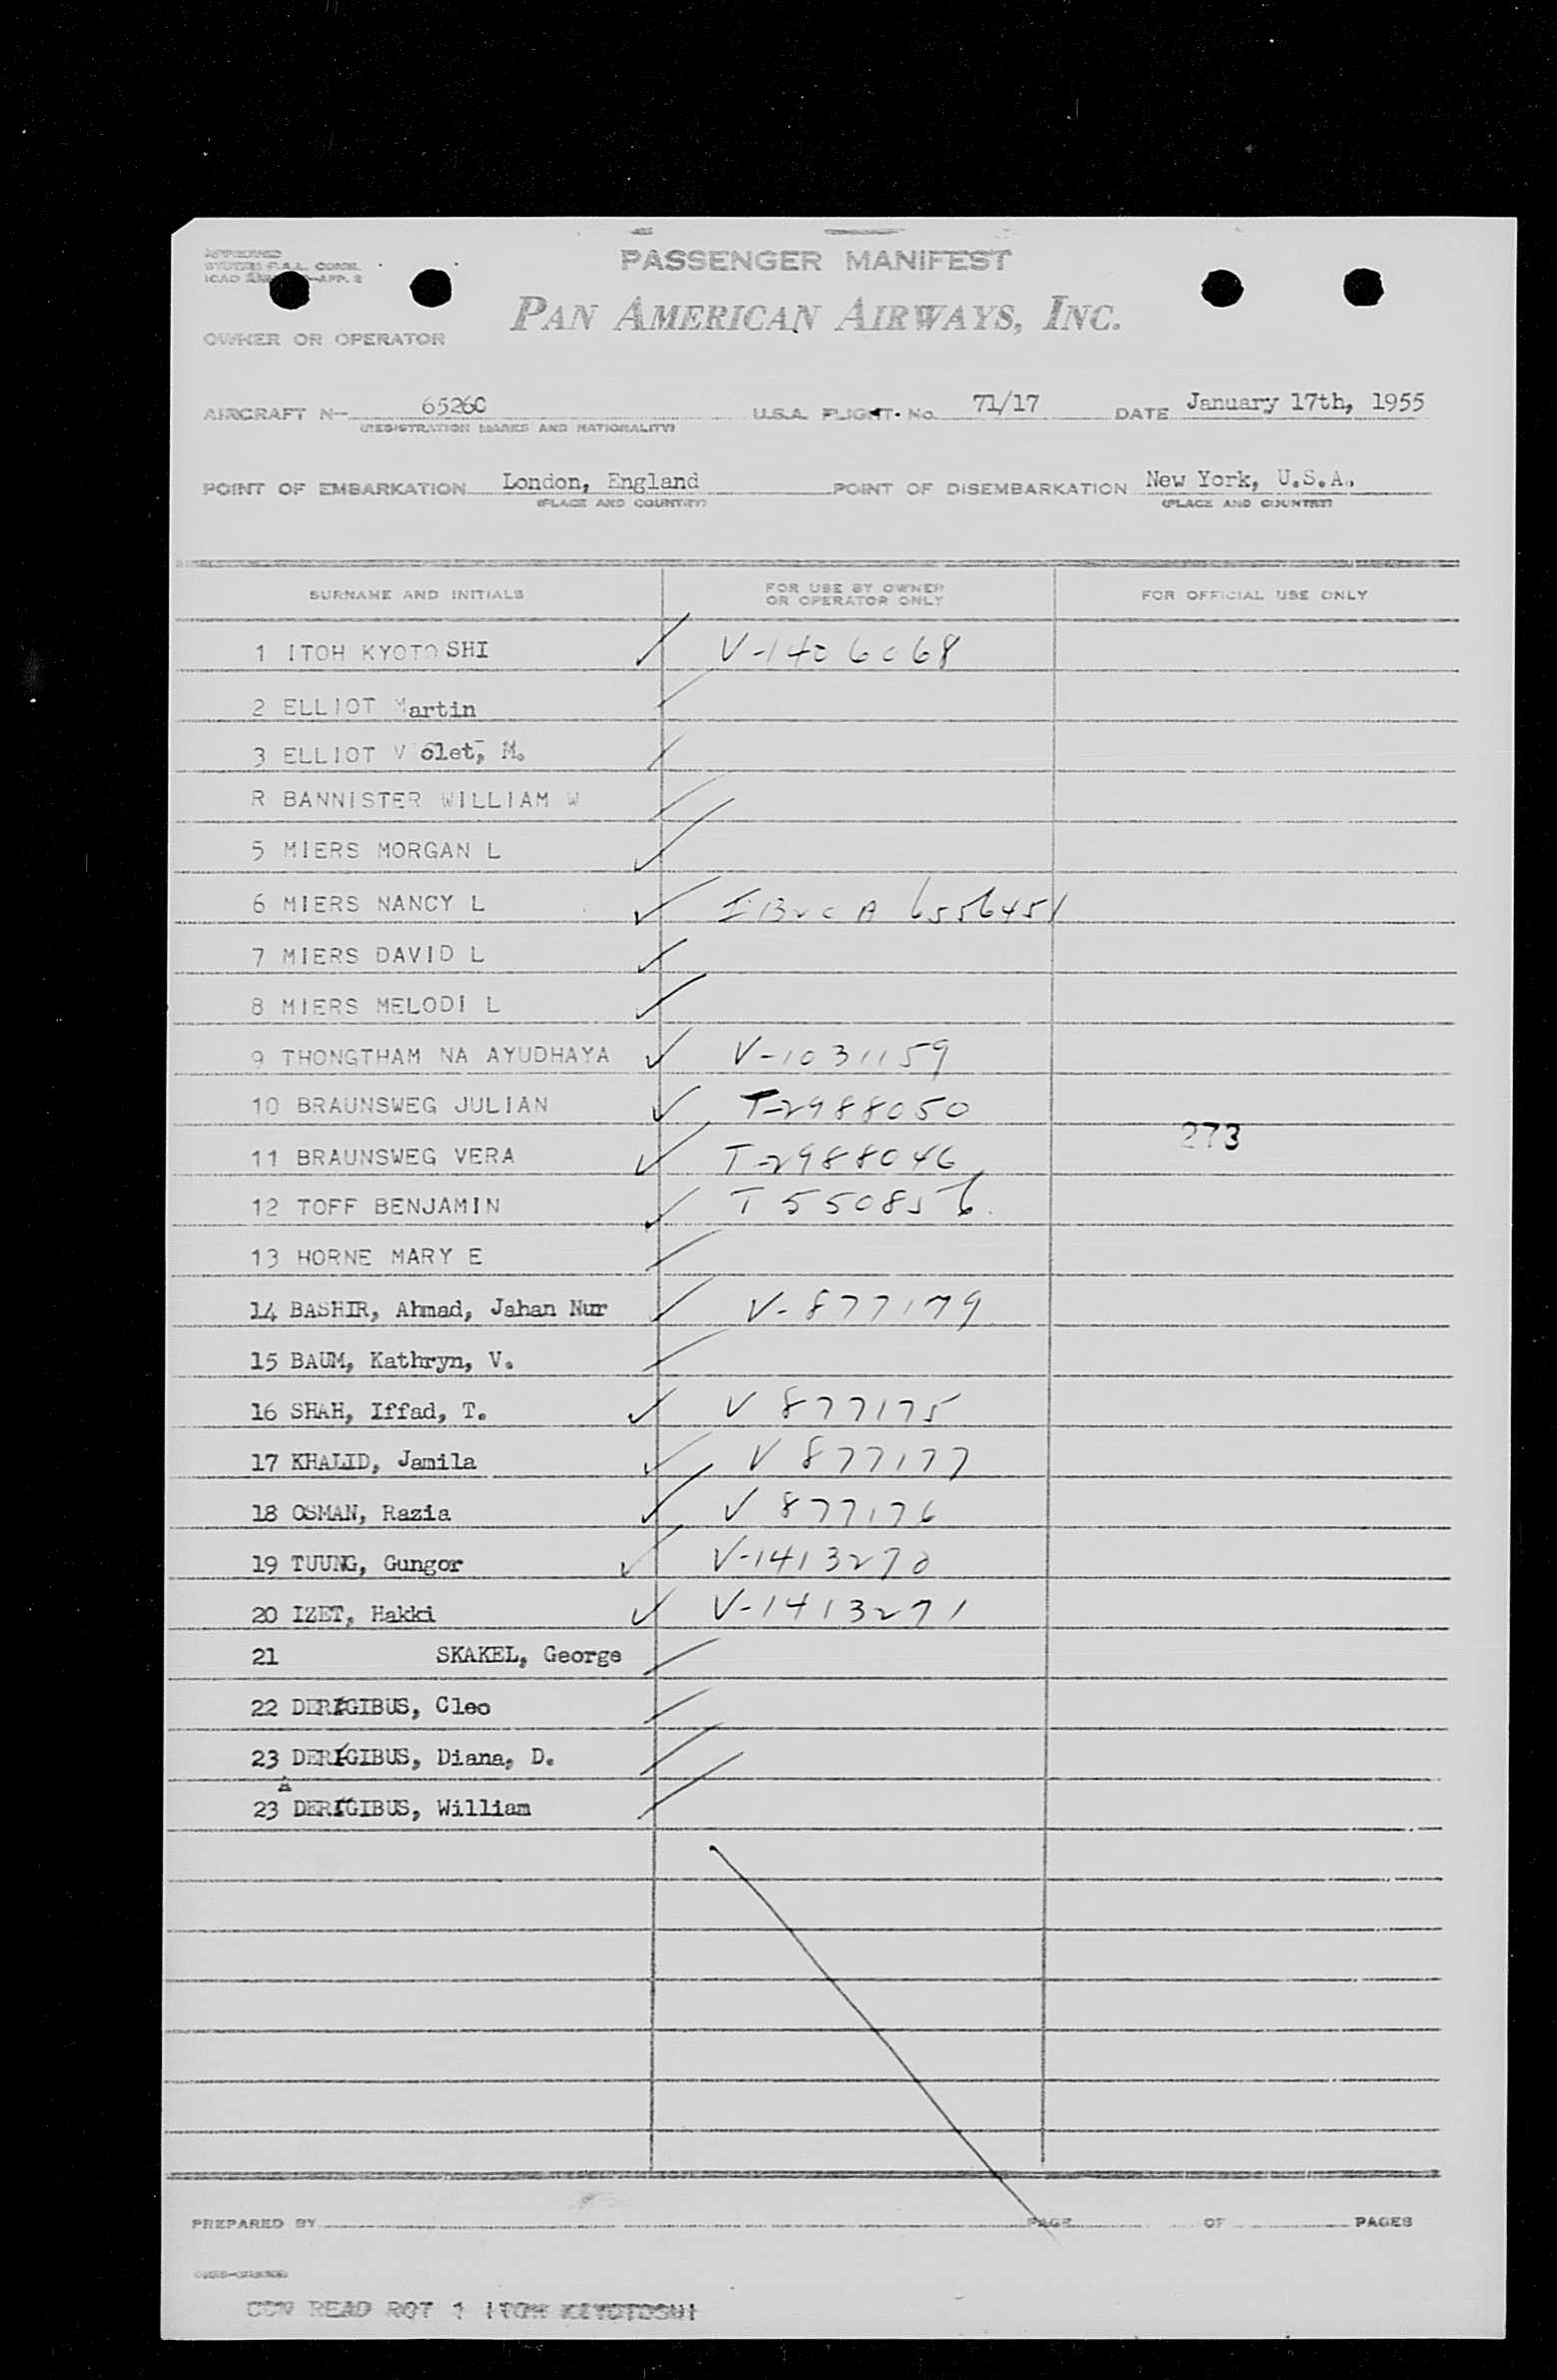 APPROVED
ICAO APP. 2
PASSENGER MANIFEST
PAN AMERICAN AIRWAYS, INC.
OWNER OR OPERATOR
AIRCRAFT N- 65260 U.S.A. FLIGHT. No. 71/17 DATE January 17th, 1955
(REGISTRATION MARKS AND NATIONALITY)
POINT OF EMBARKATION London, England POINT OF DISEMBARKATION New York, U.S.A.
(PLACE AND COUNTRY) (PLACE AND COUNTRY)
SURNAME AND INITIALS FOR USE BY OWNER OR OPERATOR ONLY FOR OFFICIAL USE ONLY
1 ITOH KYOTOSHI ✓ V-1406068
2 ELLIOT Martin /
3 ELLIOT Violet, M. /
R BANNISTER WILLIAM W /
5 MIERS MORGAN L ✓
6 MIERS NANCY L ✓ 6556451
7 MIERS DAVID L ✓
8 MIERS MELODI L ✓
9 THONGTHAM NA AYUDHAYA ✓ V-1031159
10 BRAUNSWEG JULIAN ✓ T-2988050
273
11 BRAUNSWEG VERA ✓ T-2988046
12 TOFF BENJAMIN ✓ T 550856
13 HORNE MARY E /
14 BASHIR, Ahmad, Jahan Nur / V-877179
15 BAUM, Kathryn, V. /
16 SHAH, Iffad, T. ✓ V 877175
17 KHALID, Jamila ✓ V 877177
18 OSMAN, Razia ✓ V 877176
19 TUUNG, Gungor ✓ V-1413270
20 IZET, Hakki ✓ V-1413271
21 SKAKEL, George /
22 DERIGIBUS, Cleo /
23 DERIGIBUS, Diana, D. /
A
23 DERIGIBUS, William /
PREPARED BY PAGE OF PAGES
READ ROT 1 ITOH KIYOTOSHI